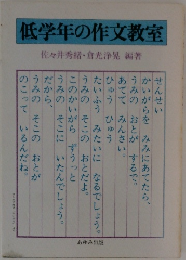 低学年の作文教室
佐々井秀緒・倉光浄晃 編著
せんせい
かいがらを みみにあてたら、
うみの おとが するで、
あてて みんさい。
ひゅう ひゅう
たいふう みたいに なるでしょう。
うみの そこの おとだよ。
このかいがら ずうっと
うみの そこに いたんでしょう。
だから、
うみの そこの おとが
のこって いるんだね。
あゆみ出版